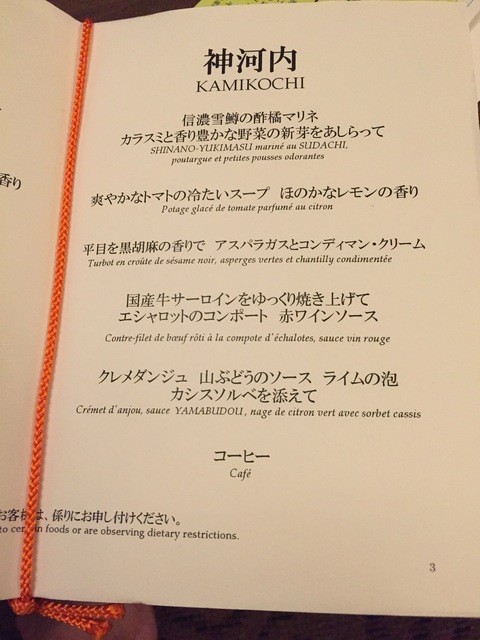 神河内
KAMIKOCHI
信濃雪鱒の酢橘マリネ
カラスミと香り豊かな野菜の新芽をあしらって
SHINANO-YUKIMASU mariné au SUDACHI,
poutargue et petites pousses odorantes
香り
爽やかなトマトの冷たいスープ ほのかなレモンの香り
Potage glacé de tomate parfumé au citron
平目を黒胡麻の香りで アスパラガスとコンディマン・クリーム
Turbot en croûte de sésame noir, asperges vertes et chantilly condimentée
国産牛サーロインをゆっくり焼き上げて
エシャロットのコンポート 赤ワインソース
Contre-filet de bœuf rôti à la compote d'échalotes, sauce vin rouge
クレメダンジュ 山ぶどうのソース ライムの泡
カシスソルベを添えて
Crémet d'anjou, sauce YAMABUDOU, nage de citron vert avec sorbet cassis
コーヒー
Café
お客様は、係りにお申し付けください。
to certain foods or are observing dietary restrictions.
3